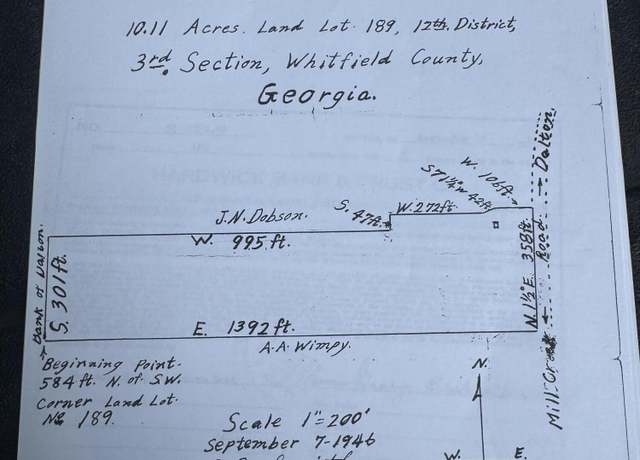 10.11 Acres. Land Lot 189, 12th. District,
3rd. Section, Whitfield County,
Georgia.
W. 106 ft.
S 71½° W 42 ft.
Dalton.
Road
Mill Creek
J.N. Dobson.
S. 47 ft.
W. 272 ft.
W. 995 ft.
Bank of Dalton.
S. 301 ft.
N. 1½° E. 358 ft.
E. 1392 ft.
A.A. Wimpy.
Beginning Point.
584 ft. N. of S.W.
Corner Land Lot.
No 189.
N.
Scale 1"=200'
September 7-1946
W. E.